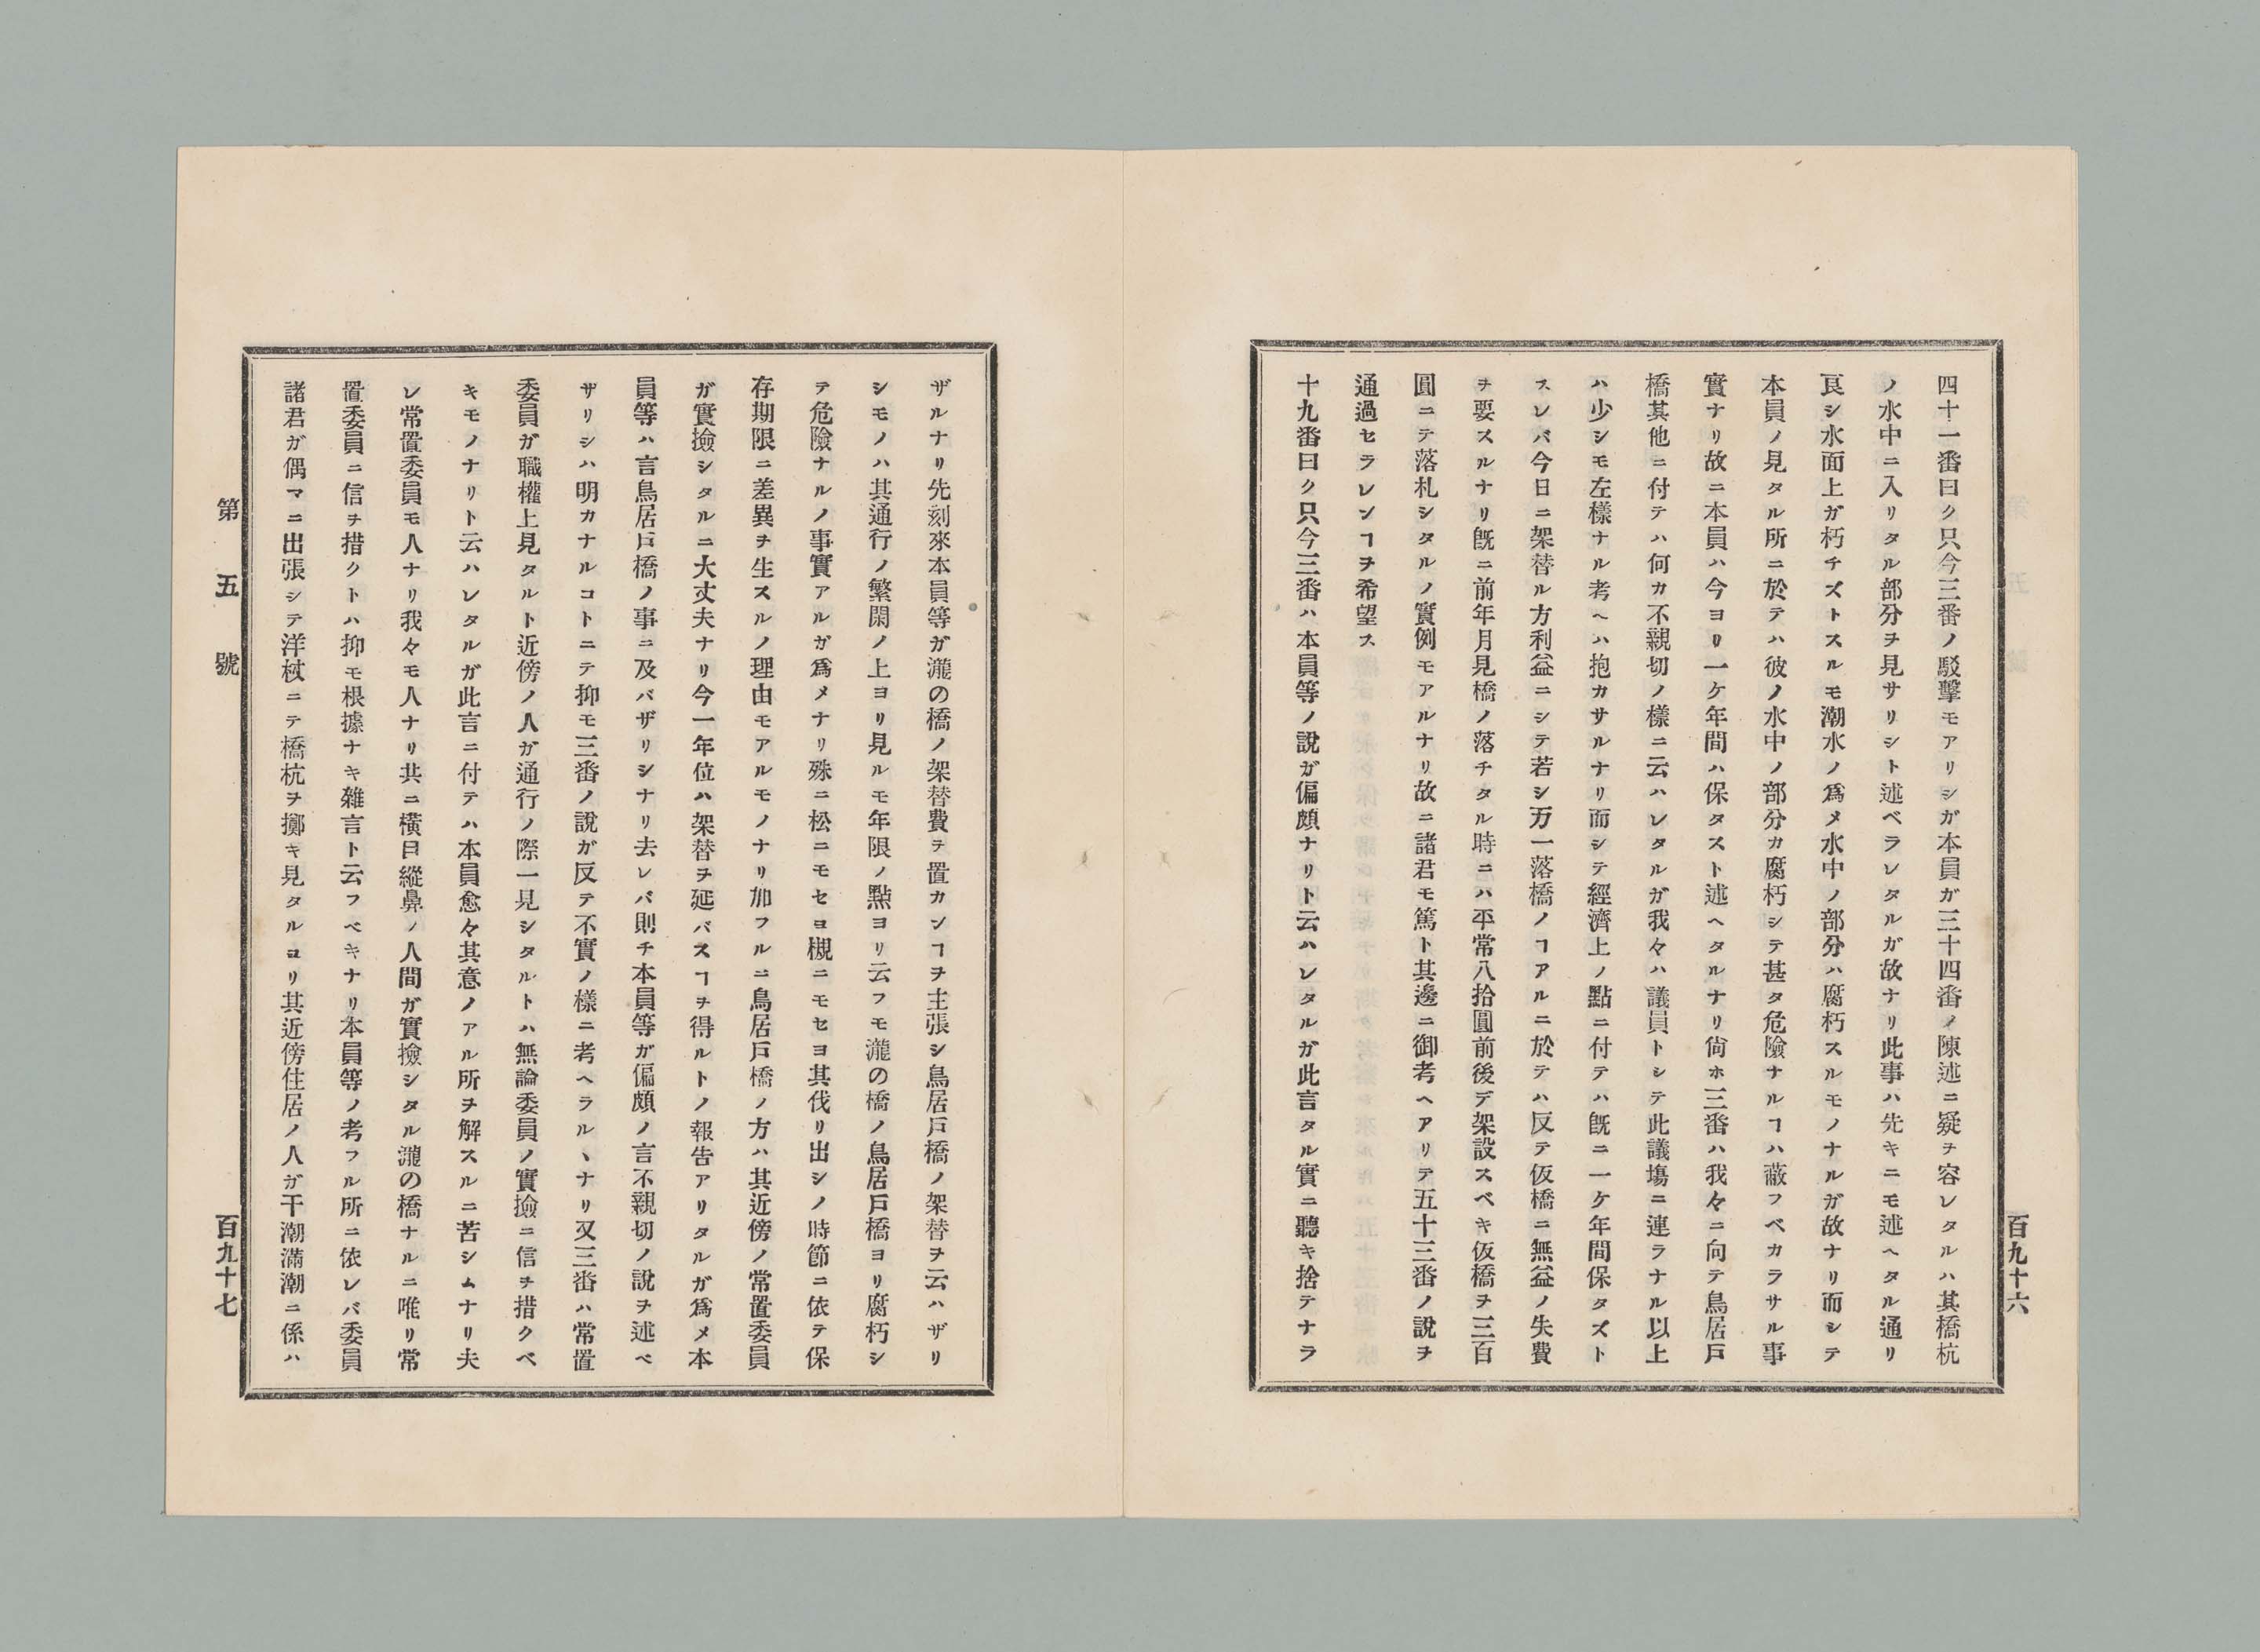 四十一番曰ク只今三番ノ駁擊モアリシガ本員ガ三十四番ノ陳述ニ疑ヲ容レタルハ其橋杭
ノ水中ニ入リタル部分ヲ見サリシト述ベラレタルガ故ナリ此事ハ先キニモ述ヘタル通リ
良シ水面上ガ朽チズトスルモ潮水ノ爲メ水中ノ部分ハ腐朽スルモノナルガ故ナリ而シテ
本員ノ見タル所ニ於テハ彼ノ水中ノ部分カ腐朽シテ甚タ危險ナルヿハ蔽フベカラサル事
實ナリ故ニ本員ハ今ヨリ一ケ年間ハ保タスト述ヘタルナリ尙ホ三番ハ我々ニ向テ鳥居戸
橋其他ニ付テハ何カ不親切ノ樣ニ云ハレタルガ我々ハ議員トシテ此議塲ニ連ラナル以上
ハ少シモ左樣ナル考ヘハ抱カサルナリ而シテ經濟上ノ點ニ付テハ既ニ一ケ年間保タズト
スレバ今日ニ架替ル方利益ニシテ若シ万一落橋ノヿアルニ於テハ反テ仮橋ニ無益ノ失費
ヲ要スルナリ既ニ前年月見橋ノ落チタル時ニハ平常八拾圓前後デ架設スベキ仮橋ヲ三百
圓ニテ落札シタルノ實例モアルナリ故ニ諸君モ篤ト其邊ニ御考ヘアリテ五十三番ノ說ヲ
通過セラレンヿヲ希望ス
十九番曰ク只今三番ハ本員等ノ說ガ偏頗ナリト云ハレタルガ此言タル實ニ聽キ捨テナラ
百九十六
ザルナリ先刻來本員等ガ瀧の橋ノ架替費ヲ置カンヿヲ主張シ鳥居戸橋ノ架替ヲ云ハザリ
シモノハ其通行ノ繁閑ノ上ヨリ見ルモ年限ノ點ヨリ云フモ瀧の橋ノ鳥居戸橋ヨリ腐朽シ
テ危險ナルノ事實アルガ爲メナリ殊ニ松ニモセヨ槻ニモセヨ其伐リ出シノ時節ニ依テ保
存期限ニ差異ヲ生スルノ理由モアルモノナリ加フルニ鳥居戸橋ノ方ハ其近傍ノ常置委員
ガ實撿シタルニ大丈夫ナリ今一年位ハ架替ヲ延バスヿヲ得ルトノ報告アリタルガ爲メ本
員等ハ言鳥居戸橋ノ事ニ及バザリシナリ去レバ則チ本員等ガ偏頗ノ言不親切ノ說ヲ述ベ
ザリシハ明カナルコトニテ抑モ三番ノ說ガ反テ不實ノ樣ニ考ヘラルヽナリ又三番ハ常置
委員ガ職權上見タルト近傍ノ人ガ通行ノ際一見シタルトハ無論委員ノ實撿ニ信ヲ措クベ
キモノナリト云ハレタルガ此言ニ付テハ本員愈々其意ノアル所ヲ解スルニ苦シムナリ夫
レ常置委員モ人ナリ我々モ人ナリ共ニ橫目縱鼻ノ人間ガ實撿シタル瀧の橋ナルニ唯リ常
置委員ニ信ヲ措クトハ抑モ根據ナキ雜言ト云フベキナリ本員等ノ考フル所ニ依レバ委員
諸君ガ偶マニ出張シテ洋杖ニテ橋杭ヲ擲キ見タルヨリ其近傍住居ノ人ガ干潮滿潮ニ係ハ
第五號
百九十七